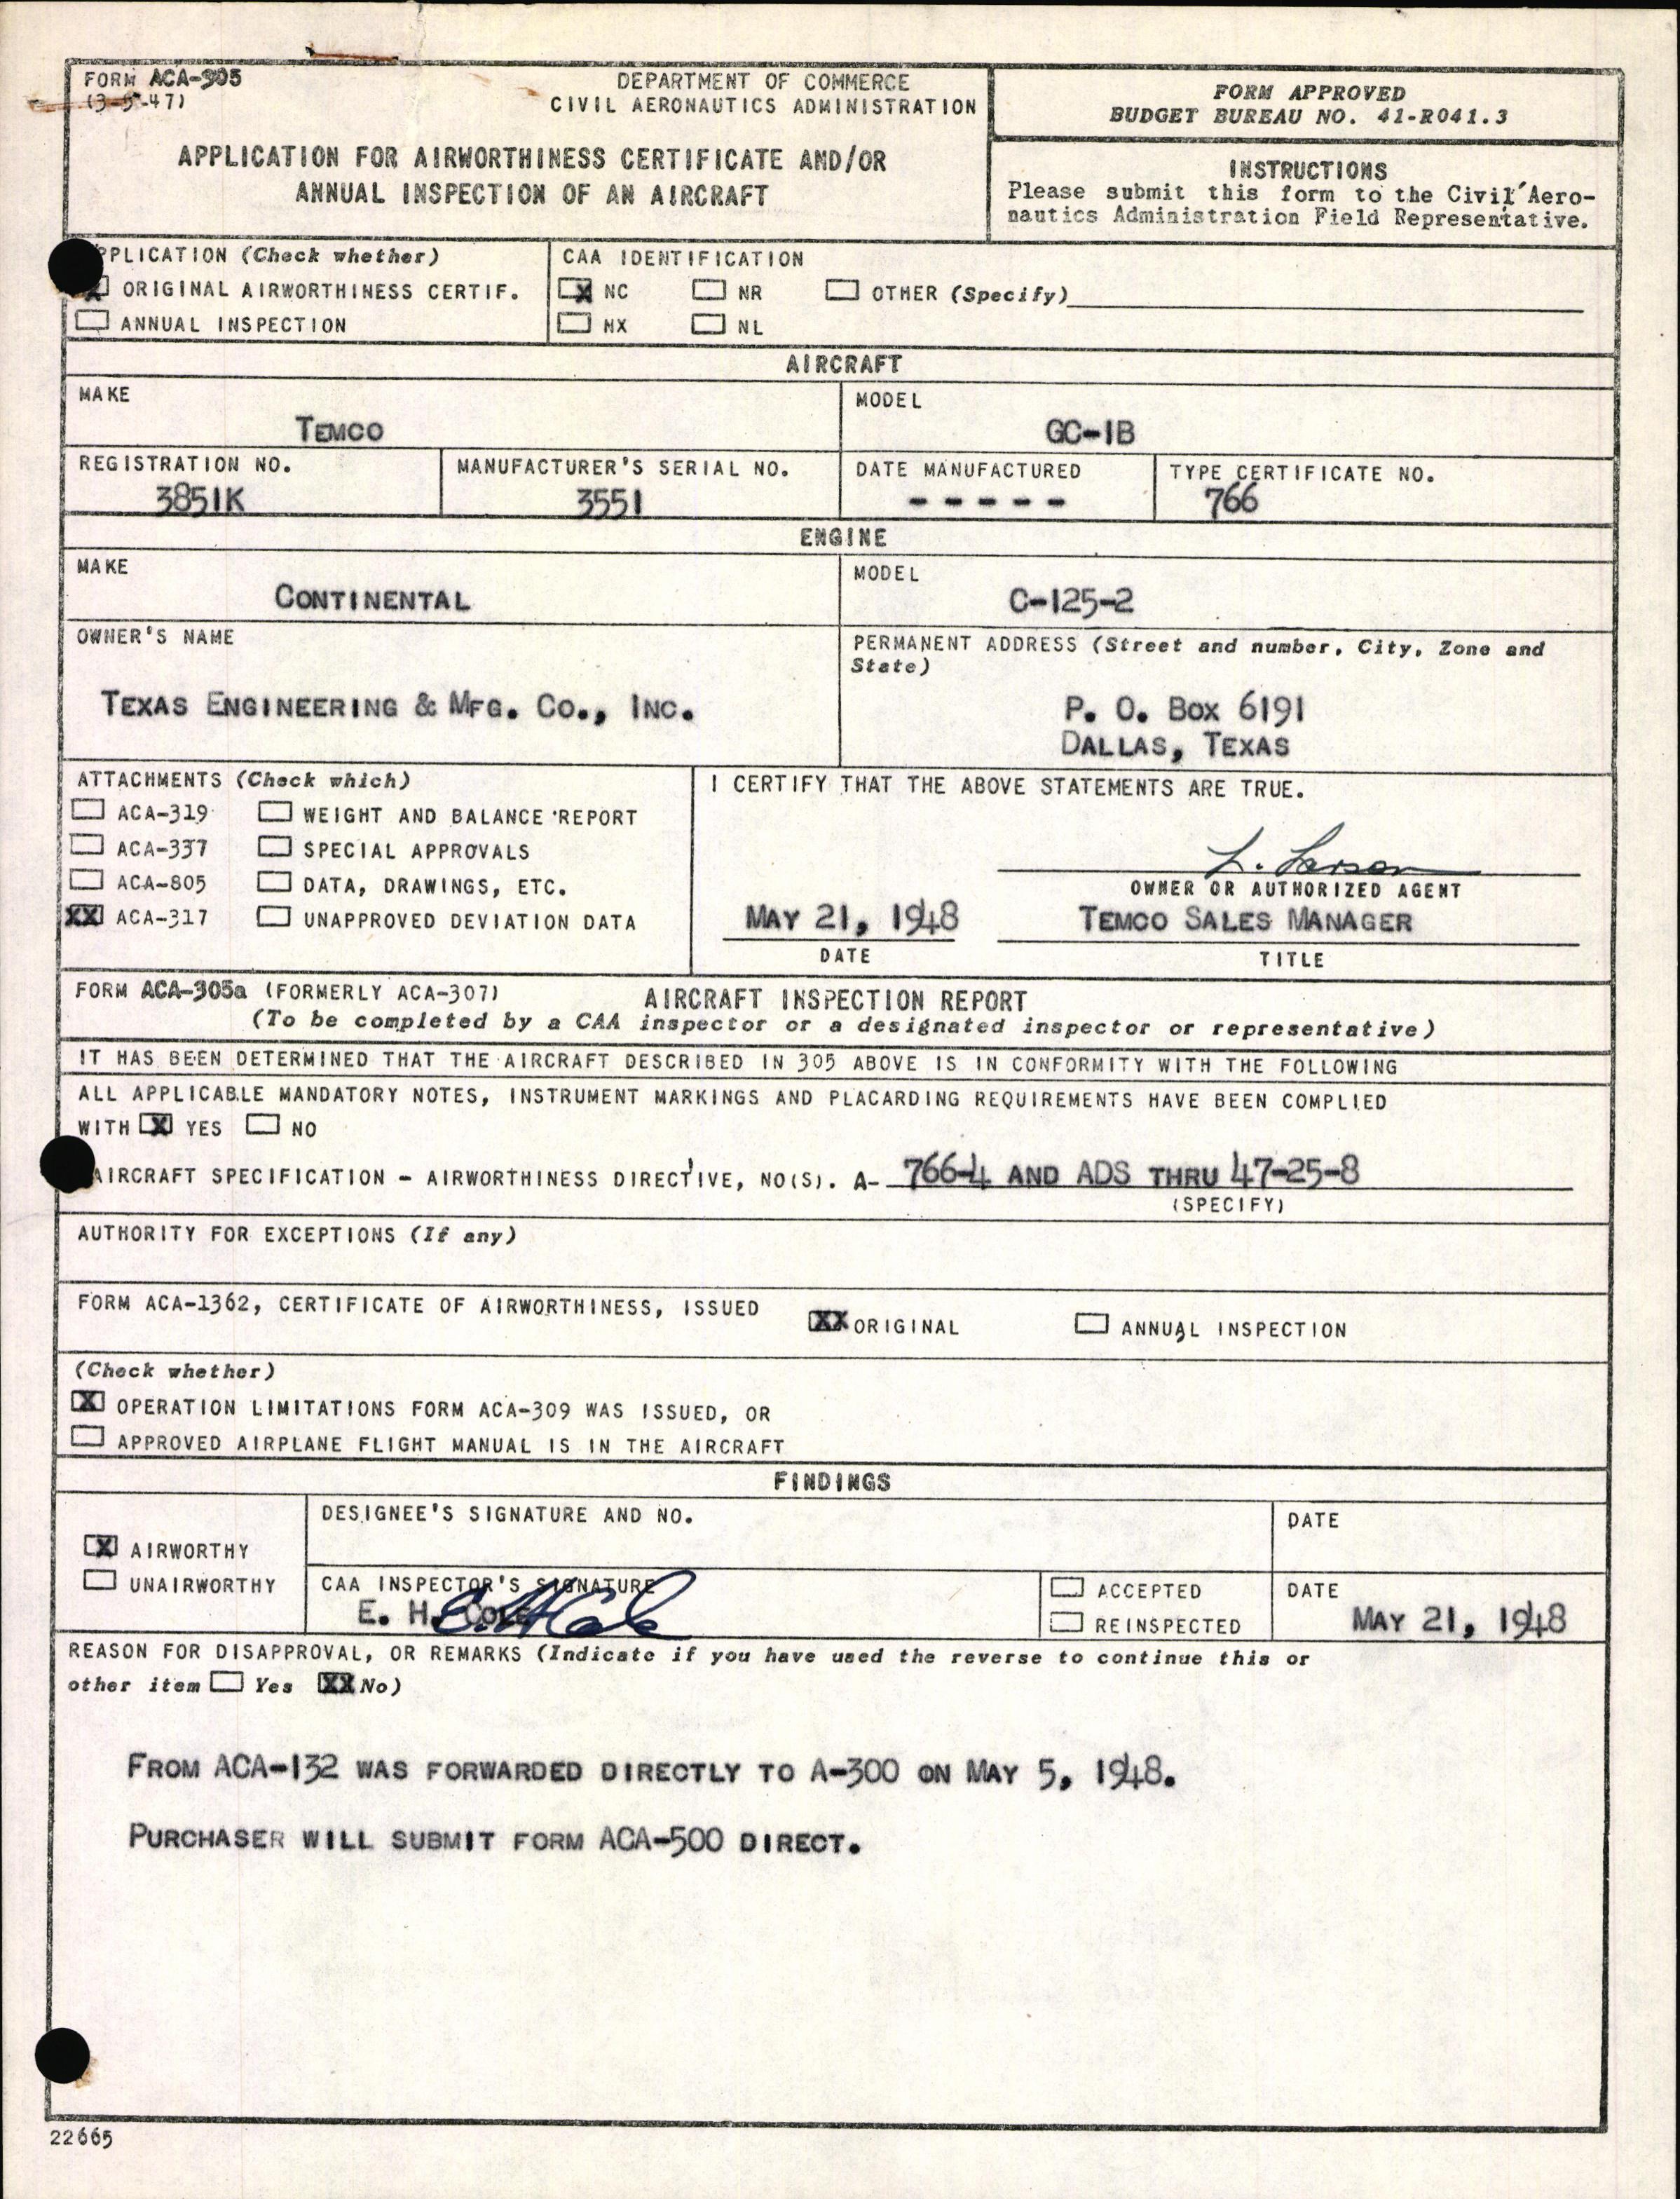 FORM ACA-305
(3-5-47)
DEPARTMENT OF COMMERCE
CIVIL AERONAUTICS ADMINISTRATION
APPLICATION FOR AIRWORTHINESS CERTIFICATE AND/OR
ANNUAL INSPECTION OF AN AIRCRAFT
FORM APPROVED
BUDGET BUREAU NO. 41-R041.3
INSTRUCTIONS
Please submit this form to the Civil Aero-
nautics Administration Field Representative.
PPLICATION (Check whether)
X ORIGINAL AIRWORTHINESS CERTIF.
ANNUAL INSPECTION
CAA IDENTIFICATION
X NC NR OTHER (Specify)
NX NL
AIRCRAFT
MAKE
TEMCO
MODEL
GC-1B
REGISTRATION NO.
3851K
MANUFACTURER'S SERIAL NO.
3551
DATE MANUFACTURED
- - - - -
TYPE CERTIFICATE NO.
766
ENGINE
MAKE
CONTINENTAL
MODEL
C-125-2
OWNER'S NAME
TEXAS ENGINEERING & MFG. CO., INC.
PERMANENT ADDRESS (Street and number, City, Zone and
State)
P. O. BOX 6191
DALLAS, TEXAS
ATTACHMENTS (Check which)
ACA-319 WEIGHT AND BALANCE REPORT
ACA-337 SPECIAL APPROVALS
ACA-805 DATA, DRAWINGS, ETC.
XX ACA-317 UNAPPROVED DEVIATION DATA
I CERTIFY THAT THE ABOVE STATEMENTS ARE TRUE.
L. Larson
OWNER OR AUTHORIZED AGENT
MAY 21, 1948 TEMCO SALES MANAGER
DATE TITLE
FORM ACA-305a (FORMERLY ACA-307) AIRCRAFT INSPECTION REPORT
(To be completed by a CAA inspector or a designated inspector or representative)
IT HAS BEEN DETERMINED THAT THE AIRCRAFT DESCRIBED IN 305 ABOVE IS IN CONFORMITY WITH THE FOLLOWING
ALL APPLICABLE MANDATORY NOTES, INSTRUMENT MARKINGS AND PLACARDING REQUIREMENTS HAVE BEEN COMPLIED
WITH X YES NO
AIRCRAFT SPECIFICATION - AIRWORTHINESS DIRECTIVE, NO(S). A- 766-4 AND ADS THRU 47-25-8
(SPECIFY)
AUTHORITY FOR EXCEPTIONS (If any)
FORM ACA-1362, CERTIFICATE OF AIRWORTHINESS, ISSUED XX ORIGINAL ANNUAL INSPECTION
(Check whether)
X OPERATION LIMITATIONS FORM ACA-309 WAS ISSUED, OR
APPROVED AIRPLANE FLIGHT MANUAL IS IN THE AIRCRAFT
FINDINGS
X AIRWORTHY
UNAIRWORTHY
DESIGNEE'S SIGNATURE AND NO.
DATE
CAA INSPECTOR'S SIGNATURE
E. H. COLE
E. H. Cole
ACCEPTED
REINSPECTED
DATE
MAY 21, 1948
REASON FOR DISAPPROVAL, OR REMARKS (Indicate if you have used the reverse to continue this or
other item Yes XX No)
FROM ACA-132 WAS FORWARDED DIRECTLY TO A-300 ON MAY 5, 1948.
PURCHASER WILL SUBMIT FORM ACA-500 DIRECT.
22665